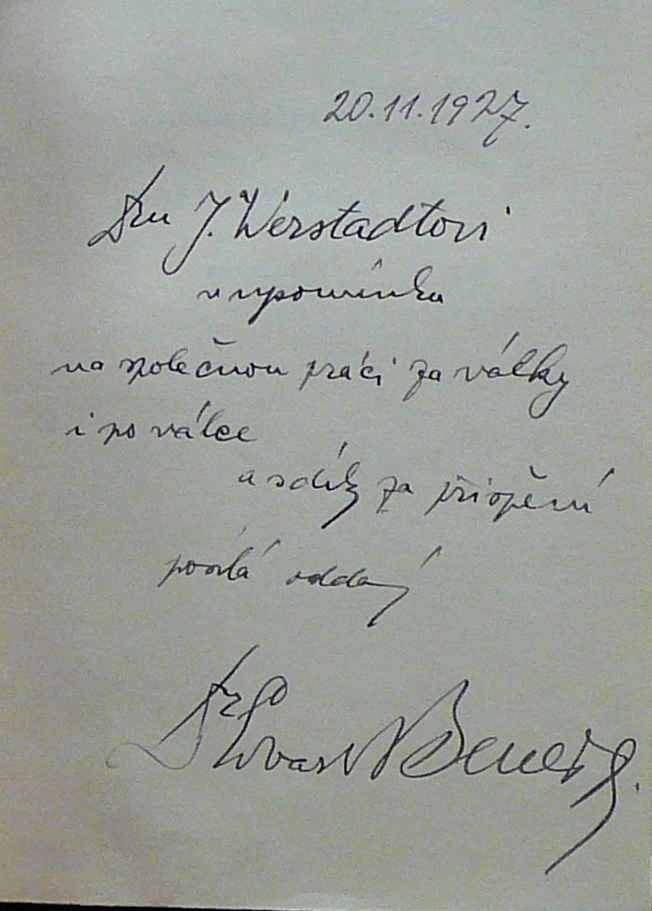 20.11.1927.
Dru J. Werstadtovi
vzpomínku
na společnou práci za války
i po válce
a s díky za přispění
posílá oddaný
Dr Edvard Beneš.